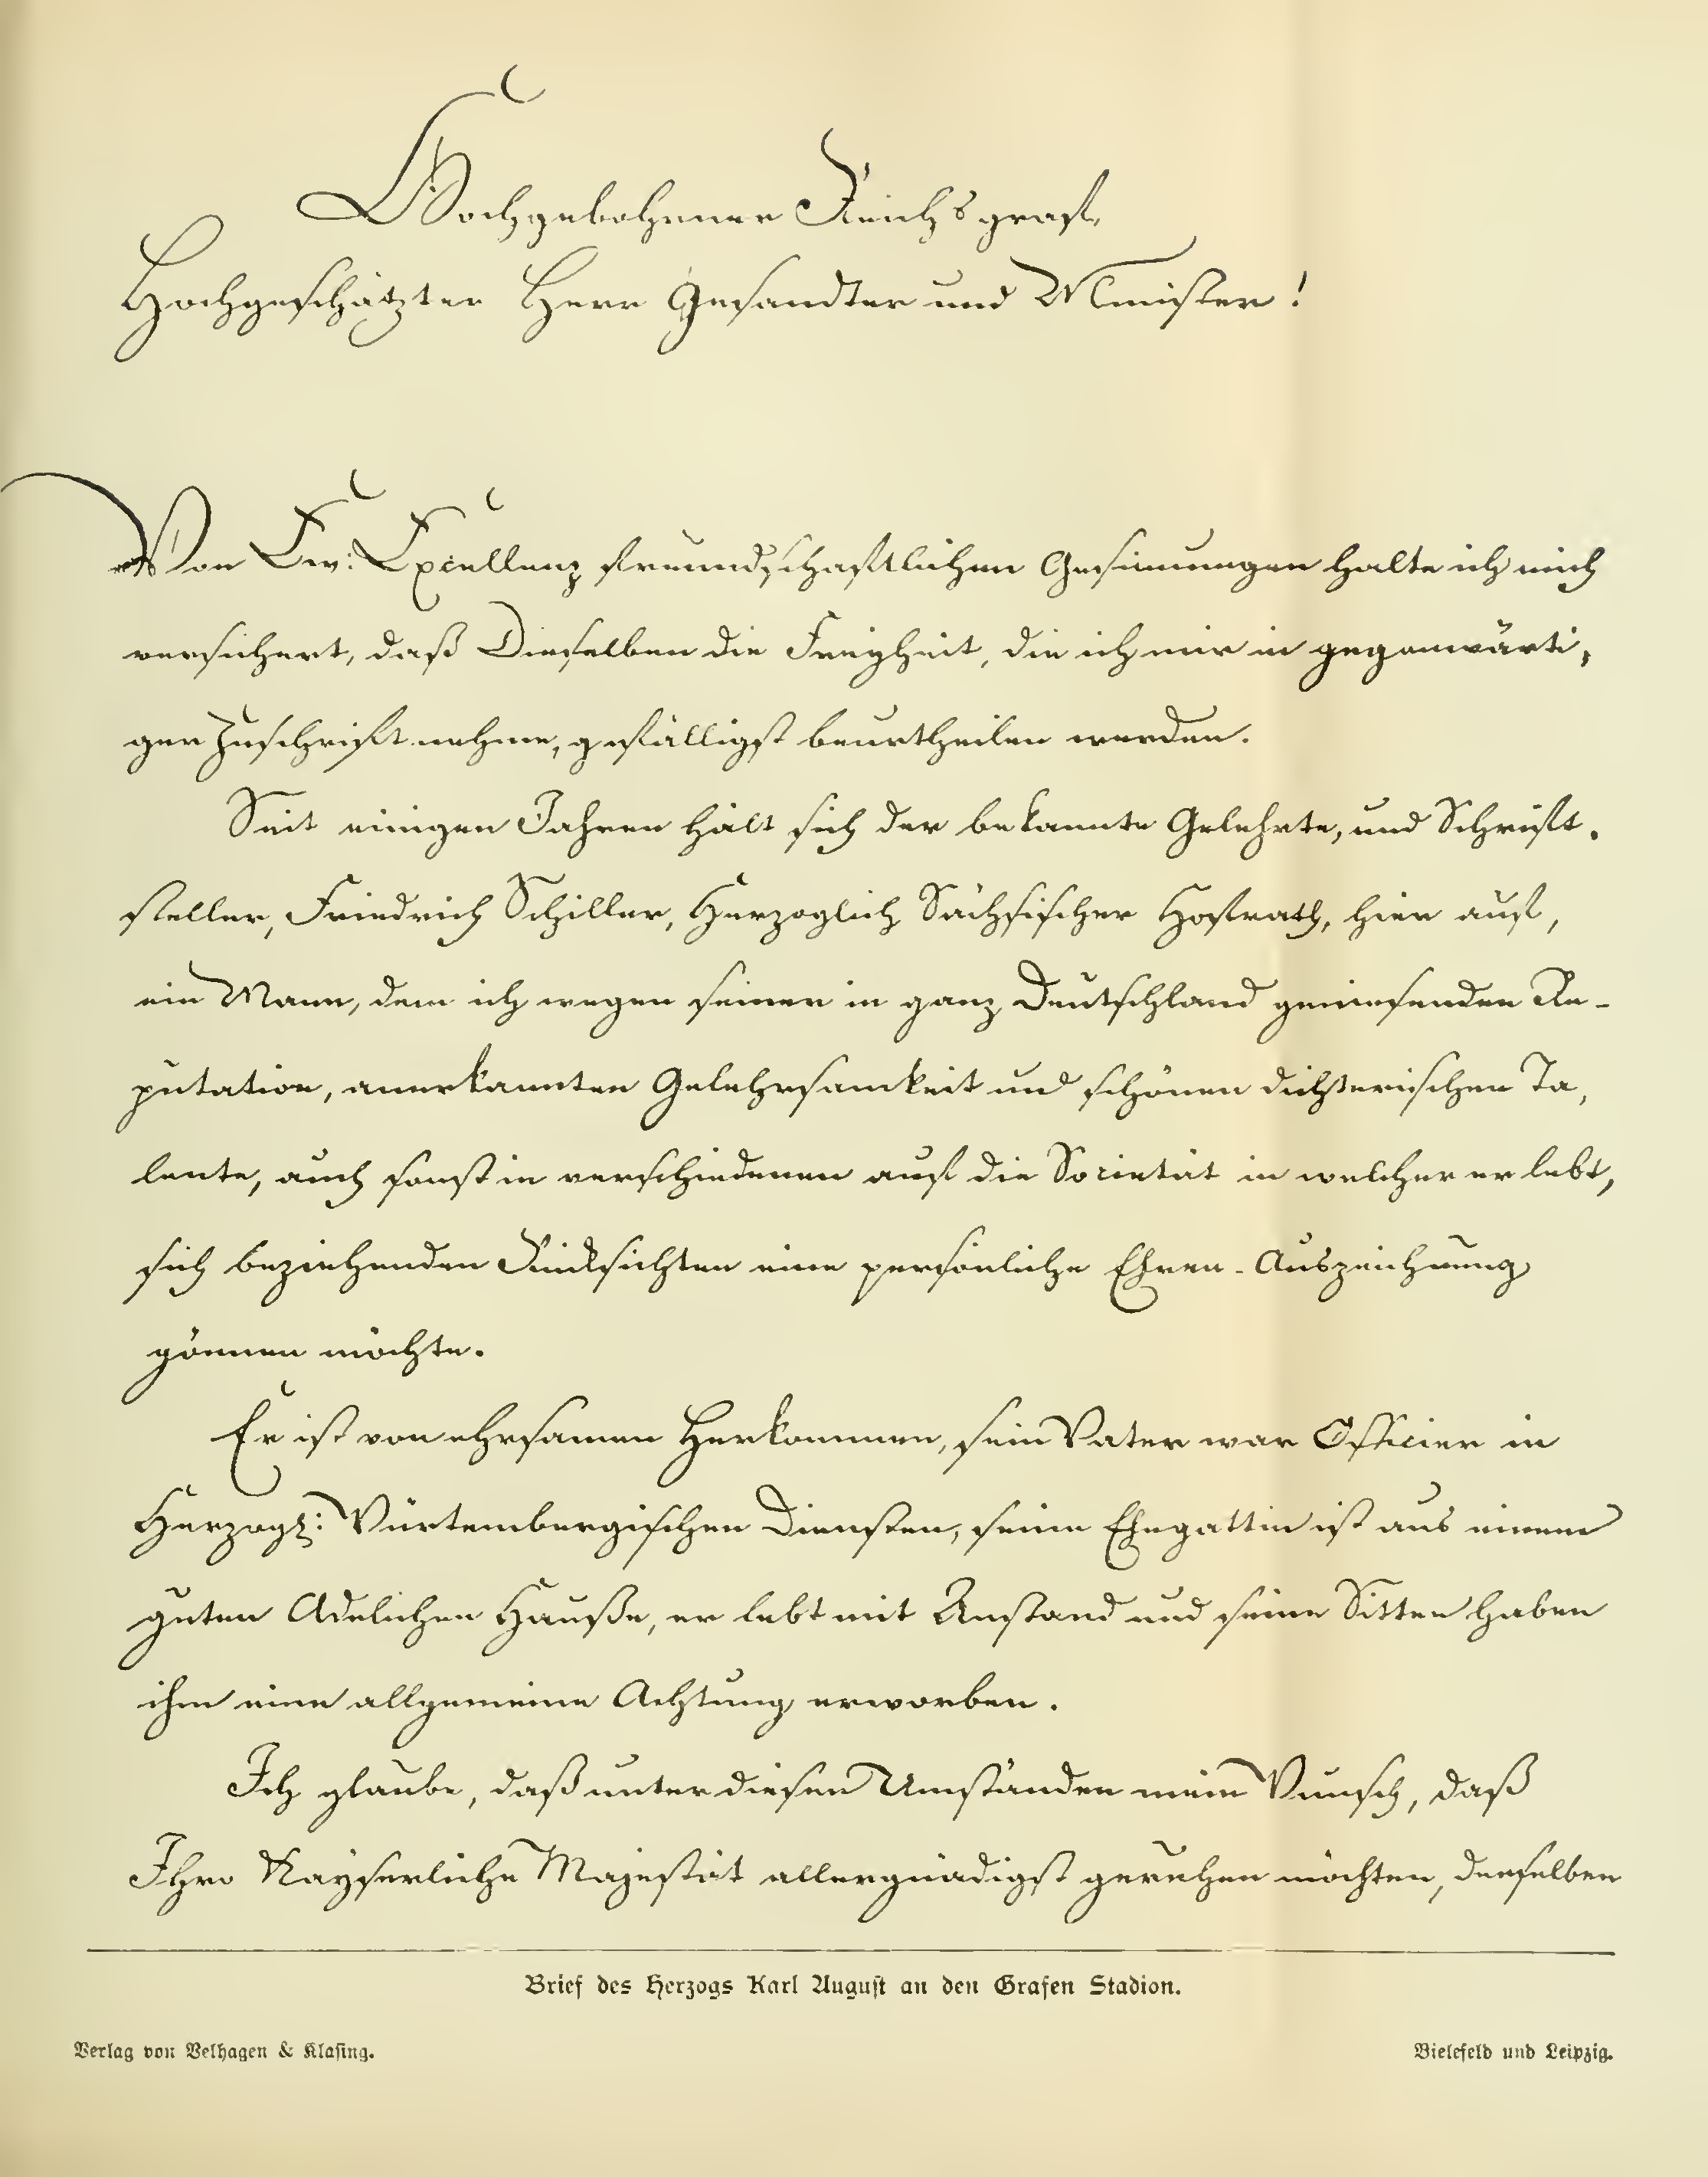 Hochgebohrner Reichsgraf,
Hochgeschätzter Herr Gesandter und Minister!
Von Ew: Excellenz freundschaftlichen Gesinnungen halte ich mich
versichert, daß Dieselben die Freyheit, die ich mir in gegenwärti,
ger Zuschrift nehme, gefälligst beurtheilen werden.
Seit einigen Jahren hält sich der bekannte Gelehrte, und Schrift,
steller, Friedrich Schiller, Herzoglich Sächsischer Hofrath, hier auf,
ein Mann, dem ich wegen seiner in ganz Deutschland geniesenden Re-
putation, anerkannten Gelehrsamkeit und schönen dichterischen Ta,
lente, auch sonst in verschiedenen auf die Societät in welcher er lebt,
sich beziehenden Rücksichten eine persönliche Ehren-Auszeichnung
gönnen möchte.
Er ist von ehrsamen Herkommen, sein Vater war Officier in
Herzogl: Würtembergischen Diensten, seine Ehegattin ist aus einem
guten Adelichen Hauße, er lebt mit Anstand und seine Sitten haben
ihm eine allgemeine Achtung erworben.
Ich glaube, daß unter diesen Umständen mein Wunsch, daß
Ihro Kayserliche Majestät allergnädigst geruhen möchten, denselben
Brief des Herzogs Karl August an den Grafen Stadion.
Verlag von Velhagen & Klasing.
Bielefeld und Leipzig.